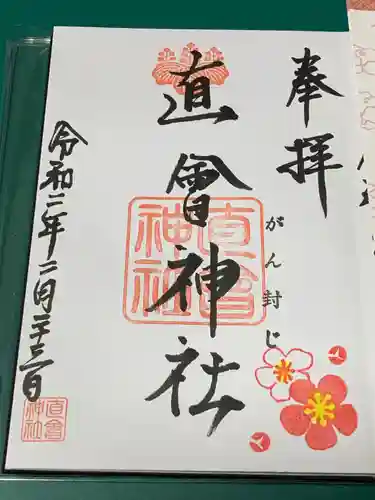 奉拝
がん封じ
直會神社
直會神社
令和二年二月二十三日
直會神社